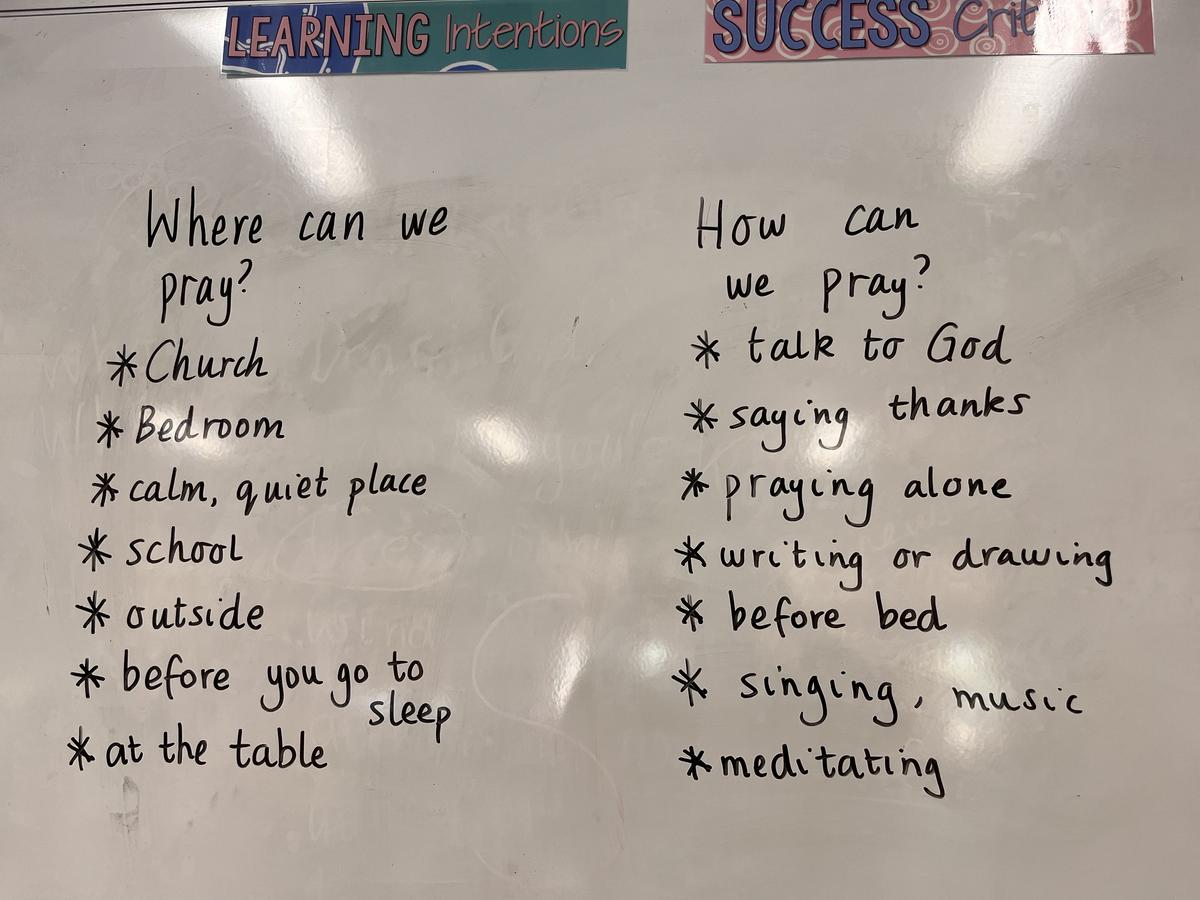 LEARNING Intentions
Where can we
pray?
* Church
* Bedroom
* calm, quiet place
* school
* outside
* before you go to
sleep
* at the table
SUCCESS
How can
we pray?
* talk to God
* saying thanks
* praying alone
* writing or drawing
* before bed
* singing, music
* meditating